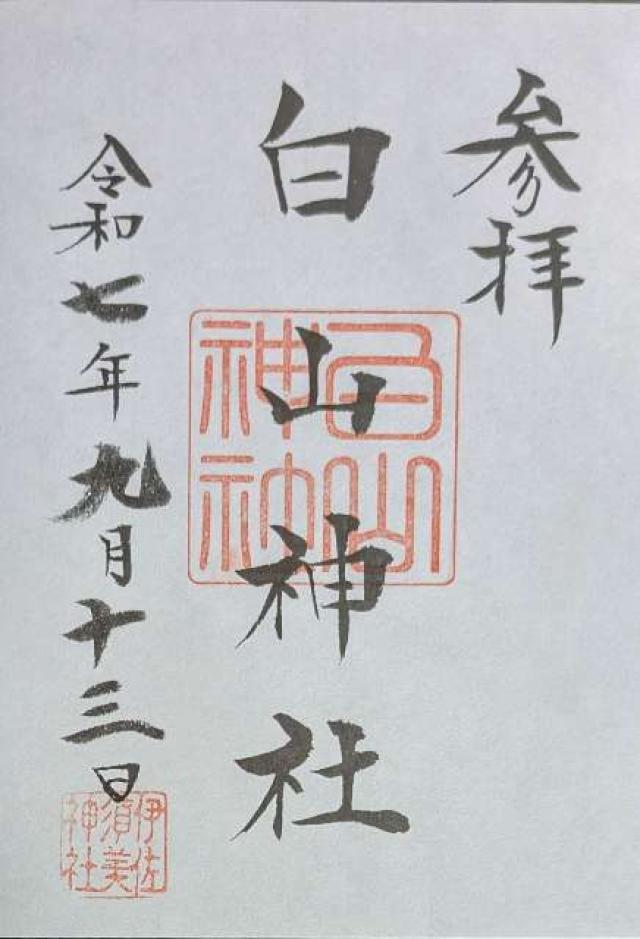 参拝
白山神社
白山
神社
令和七年九月十三日
伊佐
須美
神社